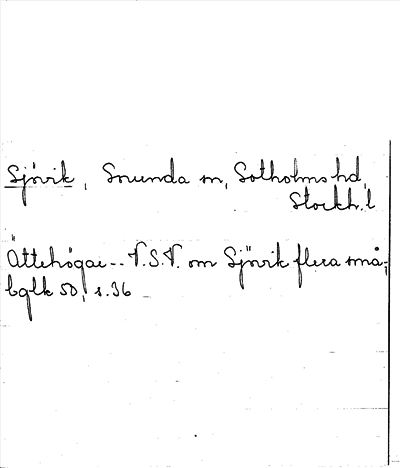 Sjövik, Sorunda sn, Sotholms hd,
Stockh. l
Ättehögar -- V.S.V. om Sjövik flera små;
bglk 50, s. 36